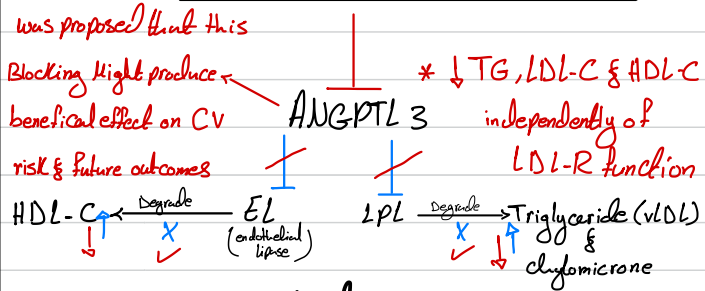 was proposed that this
Blocking Might produce
beneficial effect on CV
risk & future outcomes
* ↓ TG, LDL-C & HDL-C
independently of
LDL-R function
ANGPTL 3
HDL-C ← Degrade EL
(endothelial lipase)
LPL Degrade → Triglyceride (vLDL)
&
chylomicrone